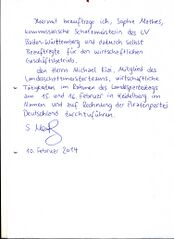 Hiermit beauftrage ich, Sophie Mathes,
kommissarische Schatzmeisterin des LV
Baden-Württemberg und dadurch selbst
Beauftragte für den wirtschaftlichen
Geschäftsbetrieb,
den Herrn Michael, Mitglied des
Landesschatzmeisterteams, wirtschaftliche
Tätigkeiten im Rahmen des Landesparteitags
am 15. und 16. Februar in Heidelberg im
Namen und auf Rechnung der Piratenpartei
Deutschland durchzuführen.
10. Februar 2014